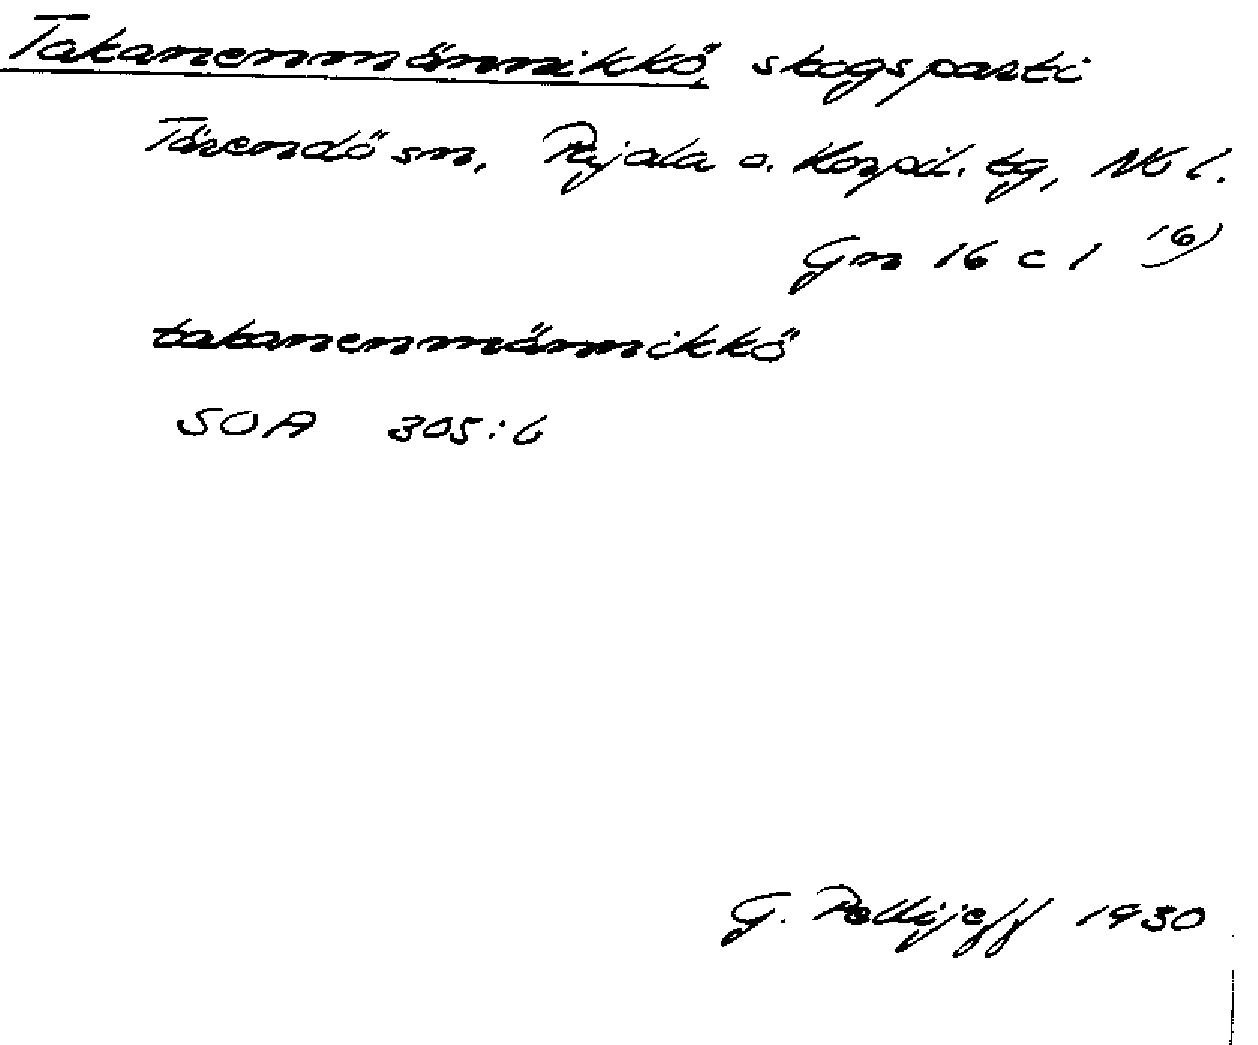 Takanenmännikkö, skogsparti
Tärendö sn, Pajala o. Korpil. tg, Nb l.
Gn 16 c 1 16)
takanenmännikkö
SOA 305:6
G. Pellijeff 1930